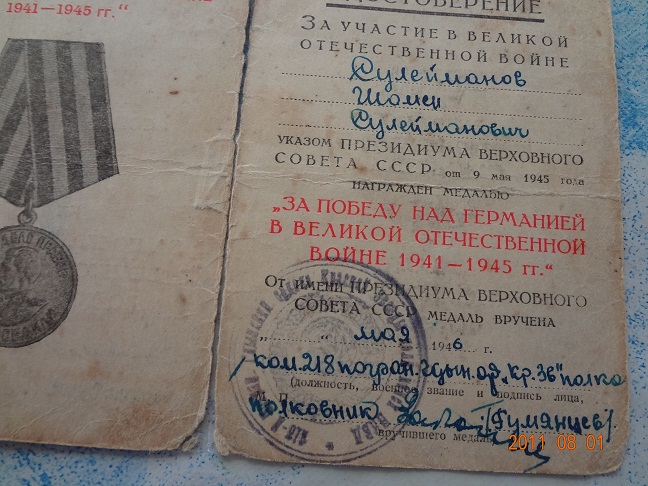 1941—1945 гг."
УДОСТОВЕРЕНИЕ
ЗА УЧАСТИЕ В ВЕЛИКОЙ
ОТЕЧЕСТВЕННОЙ ВОЙНЕ
Сулейманов
Шамси
Сулейманович
УКАЗОМ ПРЕЗИДИУМА ВЕРХОВНОГО
СОВЕТА СССР от 9 мая 1945 года
НАГРАЖДЕН МЕДАЛЬЮ
„ЗА ПОБЕДУ НАД ГЕРМАНИЕЙ
В ВЕЛИКОЙ ОТЕЧЕСТВЕННОЙ
ВОЙНЕ 1941—1945 гг."
От имени ПРЕЗИДИУМА ВЕРХОВНОГО
СОВЕТА СССР МЕДАЛЬ ВРУЧЕНА
„ " мая 1946 г.
ком. 218 погран. Кр. Зв" полка
(должность, военное звание и подпись лица,
М. П.
полковник (Румянцев)
вручившего медаль)
2011 08 01